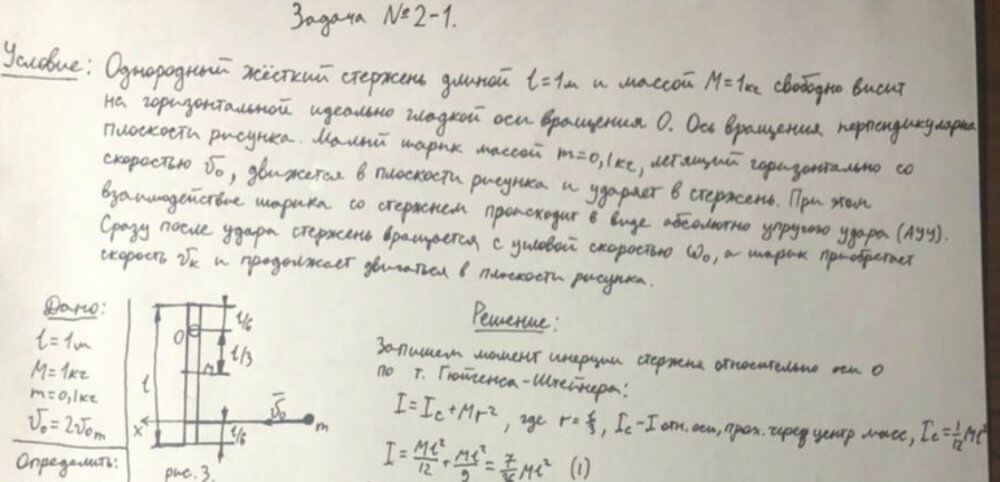 Задача №2-1.
Условие: Однородный жёсткий стержень длиной l=1м и массой M=1кг свободно висит
на горизонтальной идеально гладкой оси вращения O. Ось вращения перпендикулярна
плоскости рисунка. Малый шарик массой m=0,1кг, летящий горизонтально со
скоростью v₀, движется в плоскости рисунка и ударяет в стержень. При этом
взаимодействие шарика со стержнем происходит в виде абсолютно упругого удара (АУУ).
Сразу после удара стержень вращается с угловой скоростью ω₀, а шарик приобретает
скорость vₖ и продолжает двигаться в плоскости рисунка.
Дано:
l=1м
M=1кг
m=0,1кг
v₀=2v₀ₘ
Определить:
l/6
O
l/3
l
x
v̄₀
m
l/6
рис. 3.
Решение:
Запишем момент инерции стержня относительно оси O
по т. Гюйгенса-Штейнера:
I=I_c+Mr², где r=l/3, I_c-I отн. оси, прох. через центр масс, I_c=1/12 Ml²
I=Ml²/12+Ml²/9=7/36 Ml² (1)